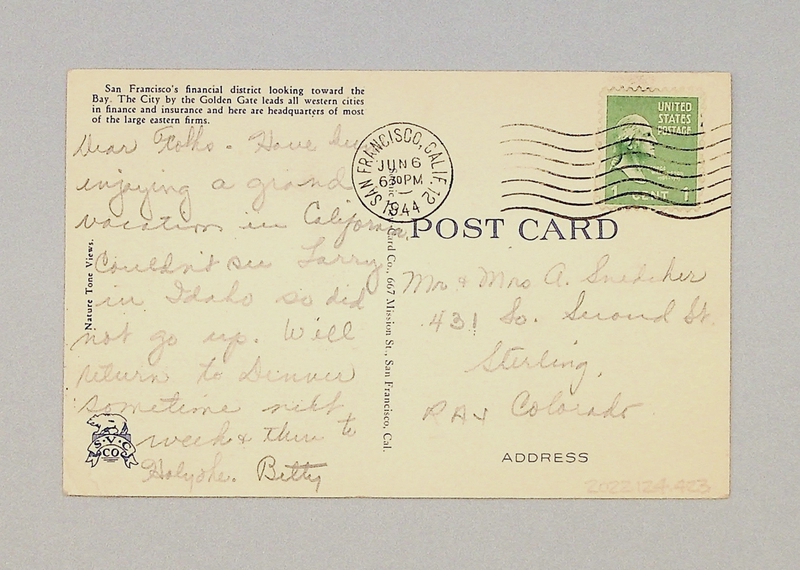 San Francisco's financial district looking toward the
Bay. The City by the Golden Gate leads all western cities
in finance and insurance and here are headquarters of most
of the large eastern firms.
Dear Folks - Have been
enjoying a grand
vacation in California.
Couldn't see Larry
in Idaho so did
not go up. Will
return to Denver
sometime next
week & then to
Holyoke. Betty
Nature Tone Views.
S.V.C.
CO
Card Co., 667 Mission St., San Francisco, Cal.
SAN FRANCISCO, CALIF. 12
JUN 6
6 30 PM
1944
UNITED
STATES
POSTAGE
1 CENT 1
POST CARD
Mr & Mrs A. Snedeker
431 So. Second St.
Sterling,
Colorado
ADDRESS
2022.124.423